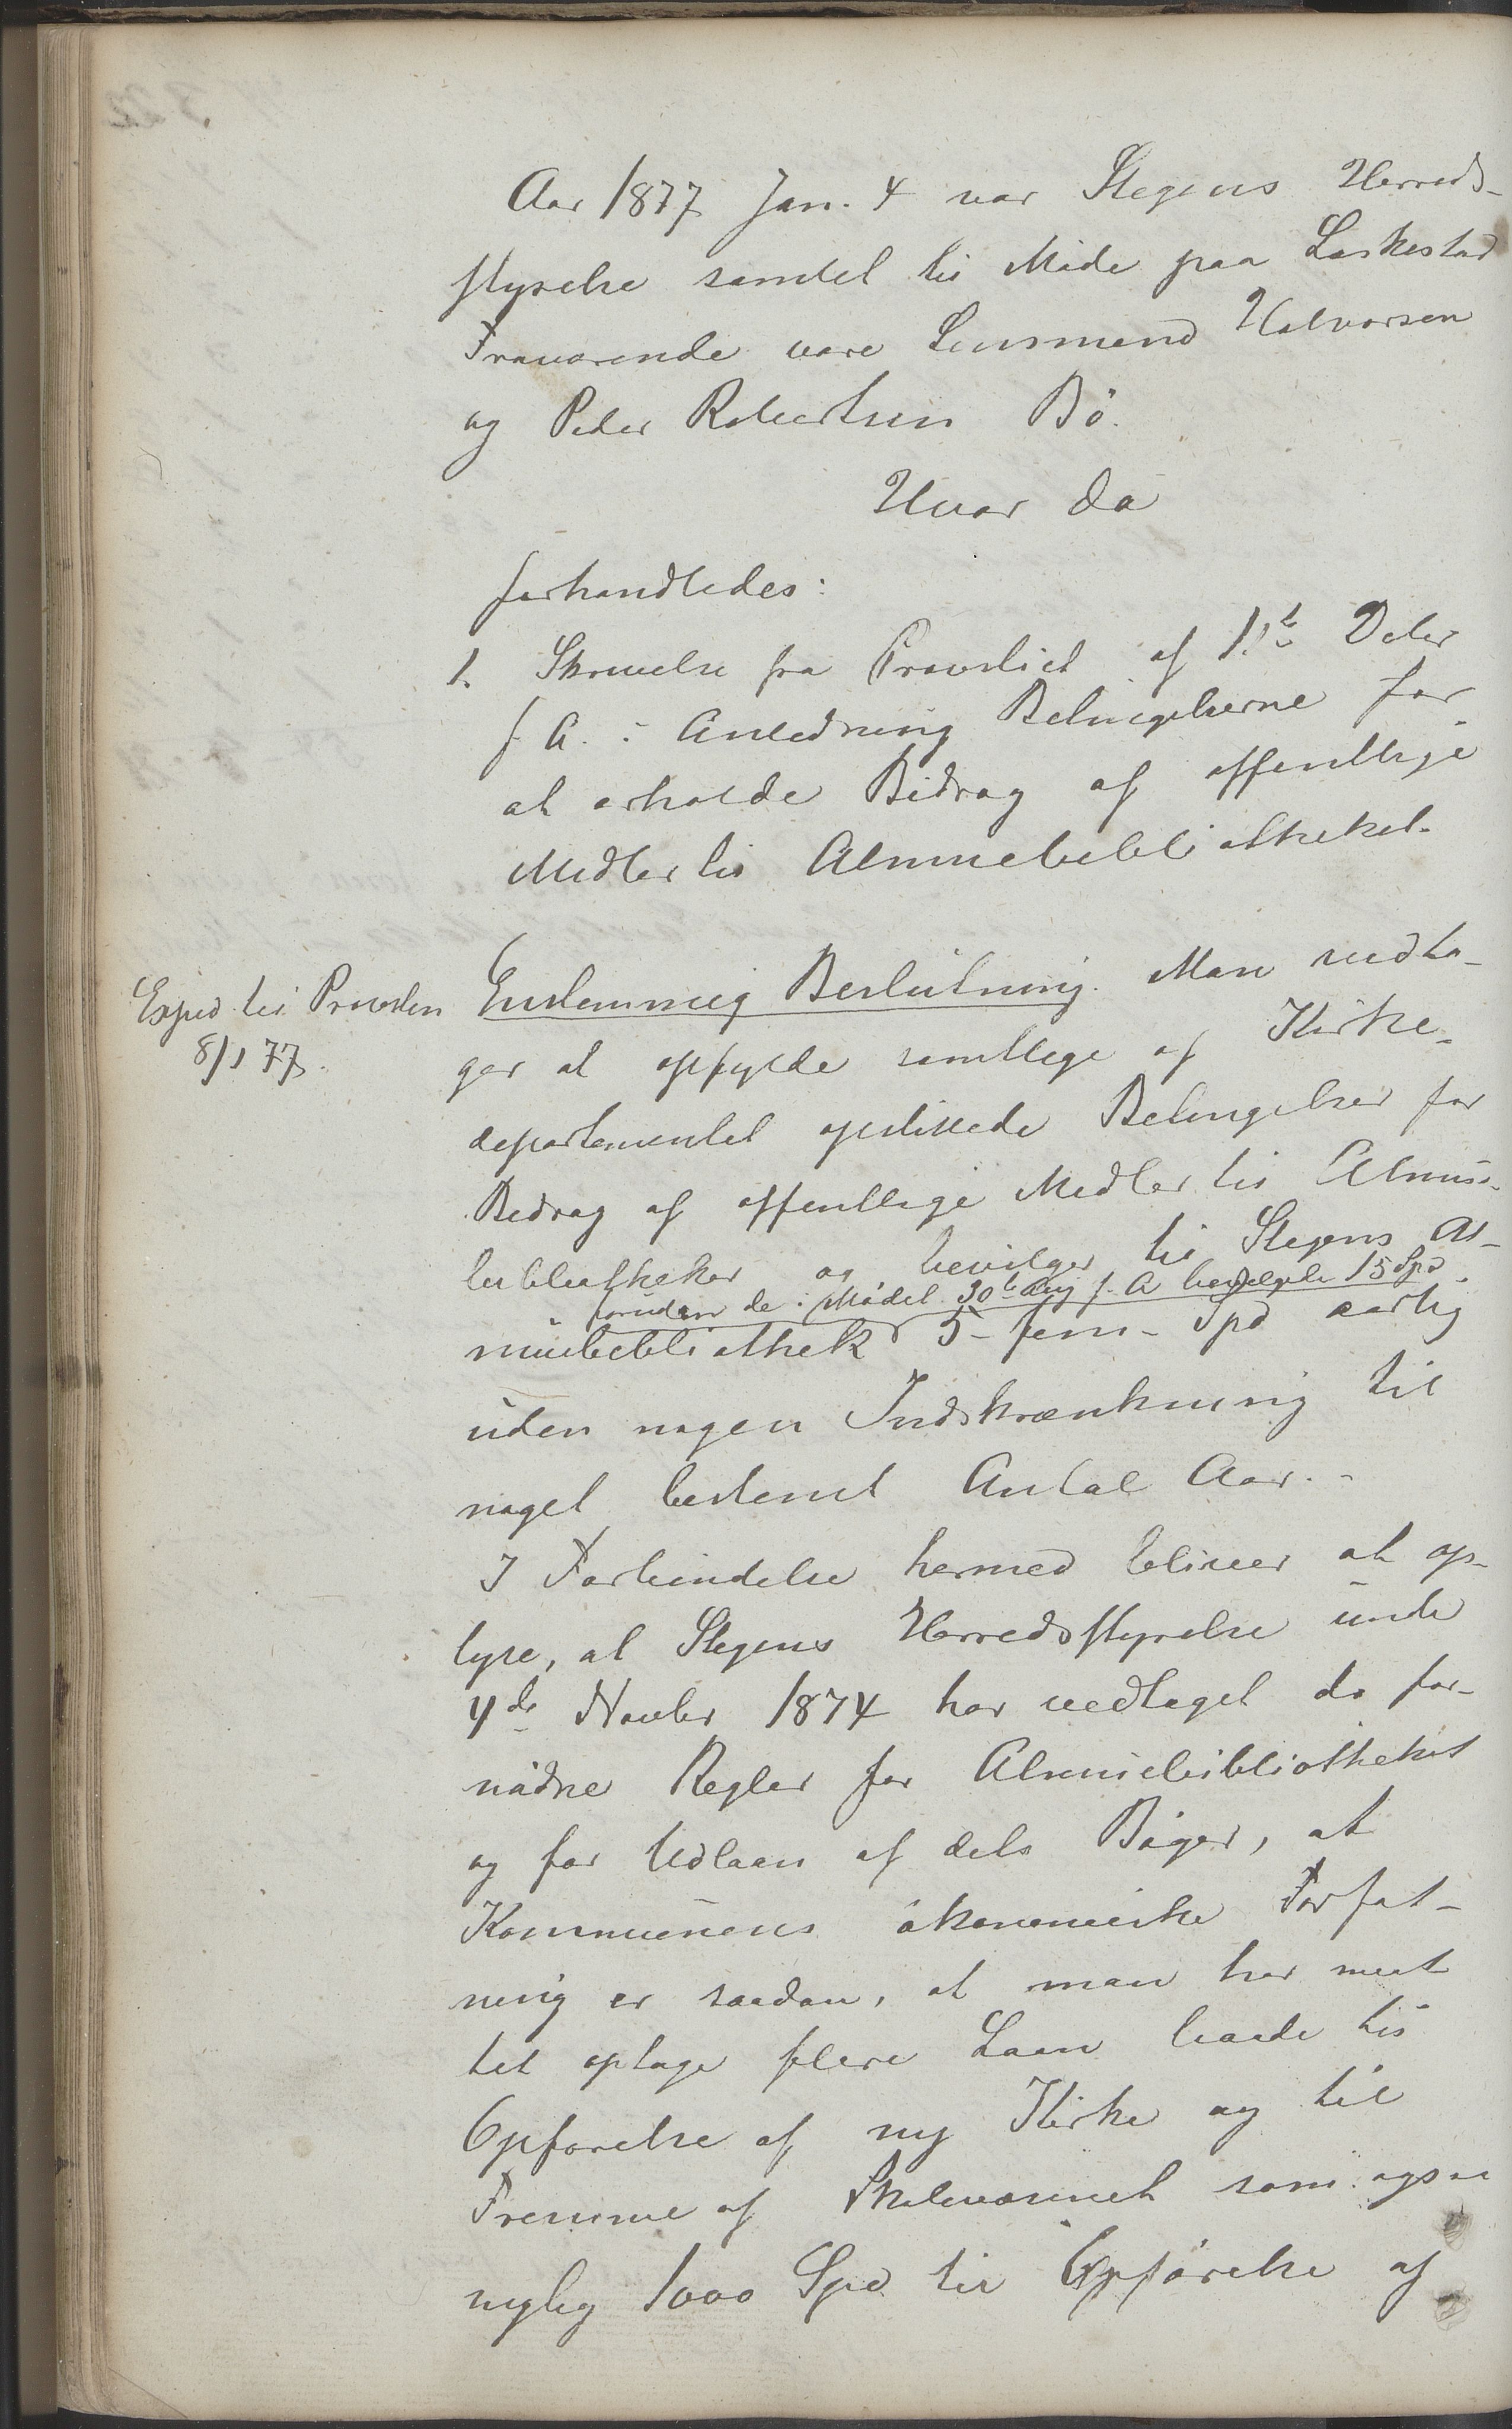 Aar 1877 Jan. 4 var Stegens Herreds-
styrelse samlet til Møde paa Laskestad
Fraværende vare Lensmand Halvorsen
og Peder Robertsen Bö.
Hvor da
forhandledes:
1. Skrivelse fra Provstiet af Dcbr
f. A. i Anledning Betingelserne for
at erholde Bidrag af offentlige
Midler til Almuebibliotheket.
Exped. til Provsten
8/1 77.
Enstemmig Beslutning. Man vedta-
ger at opfylde samtlige af Kirke-
departementet opstillede Betingelser for
Bidrag af offentlige Midler til Almue-
bibliotheker og bevilger til Stegens Al-
foruden de i Mødet 30te Aug f. A bevilgede 15 Spd
muebibliothek 5 - fem - Spd aarlig
uden nogen Indskrænkning til
noget bestemt Antal Aar. -
I Forbindelse hermed bliver at op-
lyse, at Stegens Herredsstyrelse unde
4de Novbr 1874 har vedtaget de for-
nødne Regler for Almuebibliotheket
og for Udlaan af dets Bøger, at
Kommunens økonomiske Forfat-
ning er saadan, at man har maat
tet optage flere Laan baade til
Opførelse af ny Kirke og til
Fremme af Skolevæsenet som ogsaa
nylig 1000 Spd til Opførelse af